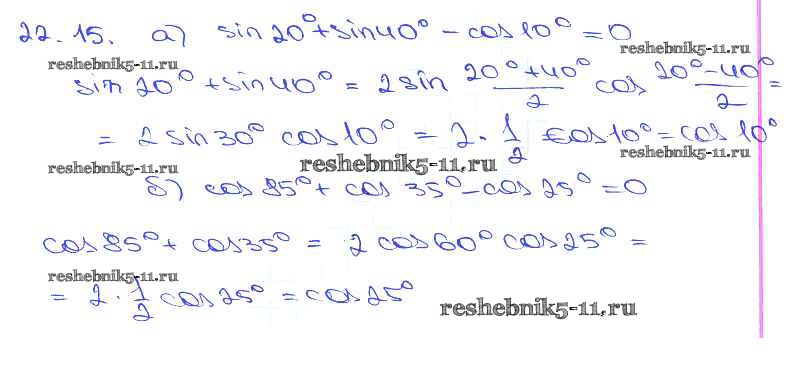 22.15. а) sin20°+sin40° - cos10° = 0
reshebnik5-11.ru
reshebnik5-11.ru
sin 20° + sin40° = 2 sin (20°+40°)/2 cos (20°-40°)/2 =
= 2 sin30° cos10° = 2 · 1/2 cos10° = cos 10°
reshebnik5-11.ru
reshebnik5-11.ru
reshebnik5-11.ru
б) cos 85° + cos 35° - cos 25° = 0
cos85° + cos35° = 2 cos60° cos25° =
reshebnik5-11.ru
= 2 · 1/2 cos25° = cos25°
reshebnik5-11.ru